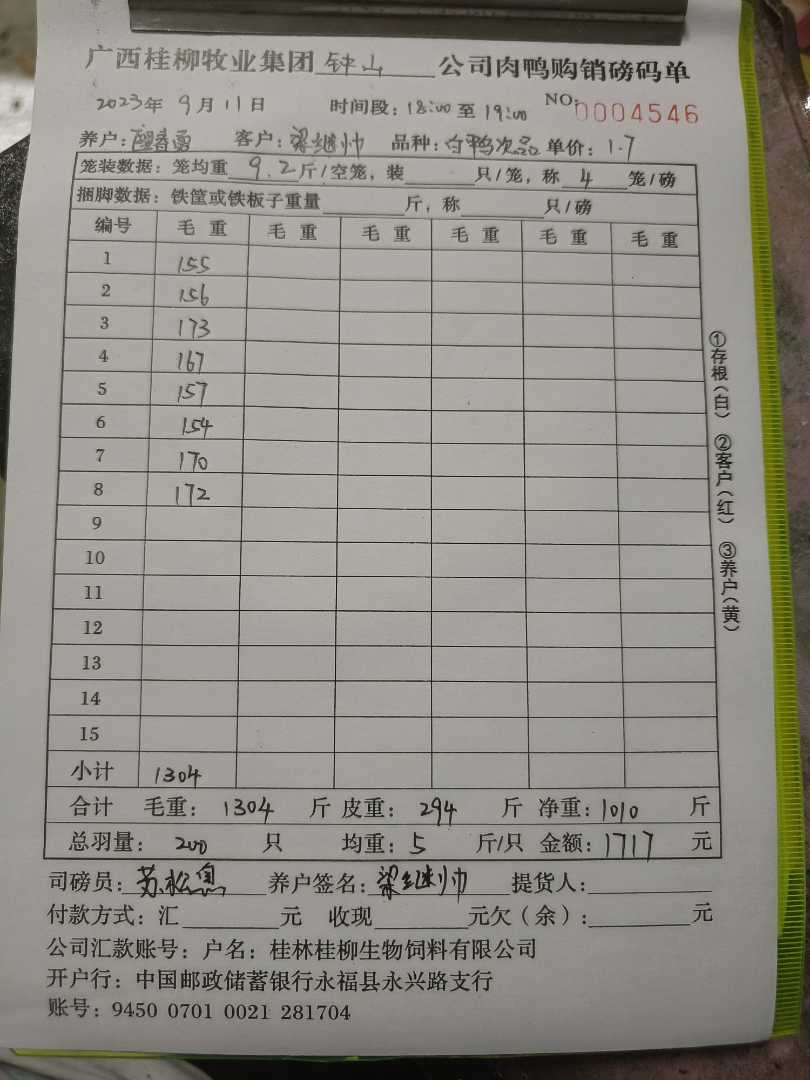 广西桂柳牧业集团 钟山 公司肉鸭购销磅码单
2023年 9月 11日 时间段: 18:00 至 19:00 NO: 0004546
养户: 客户: 梁继帅 品种: 白鸭次品 单价: 1.7
笼装数据: 笼均重 9.2 斤/空笼, 装 只/笼, 称 4 笼/磅
捆脚数据: 铁筐或铁板子重量 斤, 称 只/磅
编号 毛重 毛重 毛重 毛重 毛重 毛重
1 155
2 156
3 173
4 167
5 157
6 154
7 170
8 172
9
10
11
12
13
14
15
小计 1304
合计 毛重: 1304 斤 皮重: 294 斤 净重: 1010 斤
总羽量: 200 只 均重: 5 斤/只 金额: 1717 元
司磅员: 苏松 养户签名: 梁继帅 提货人:
付款方式: 汇 元 收现 元欠(余): 元
公司汇款账号: 户名: 桂林桂柳生物饲料有限公司
开户行: 中国邮政储蓄银行永福县永兴路支行
账号: 9450 0701 0021 281704
①存根(白) ②客户(红) ③养户(黄)